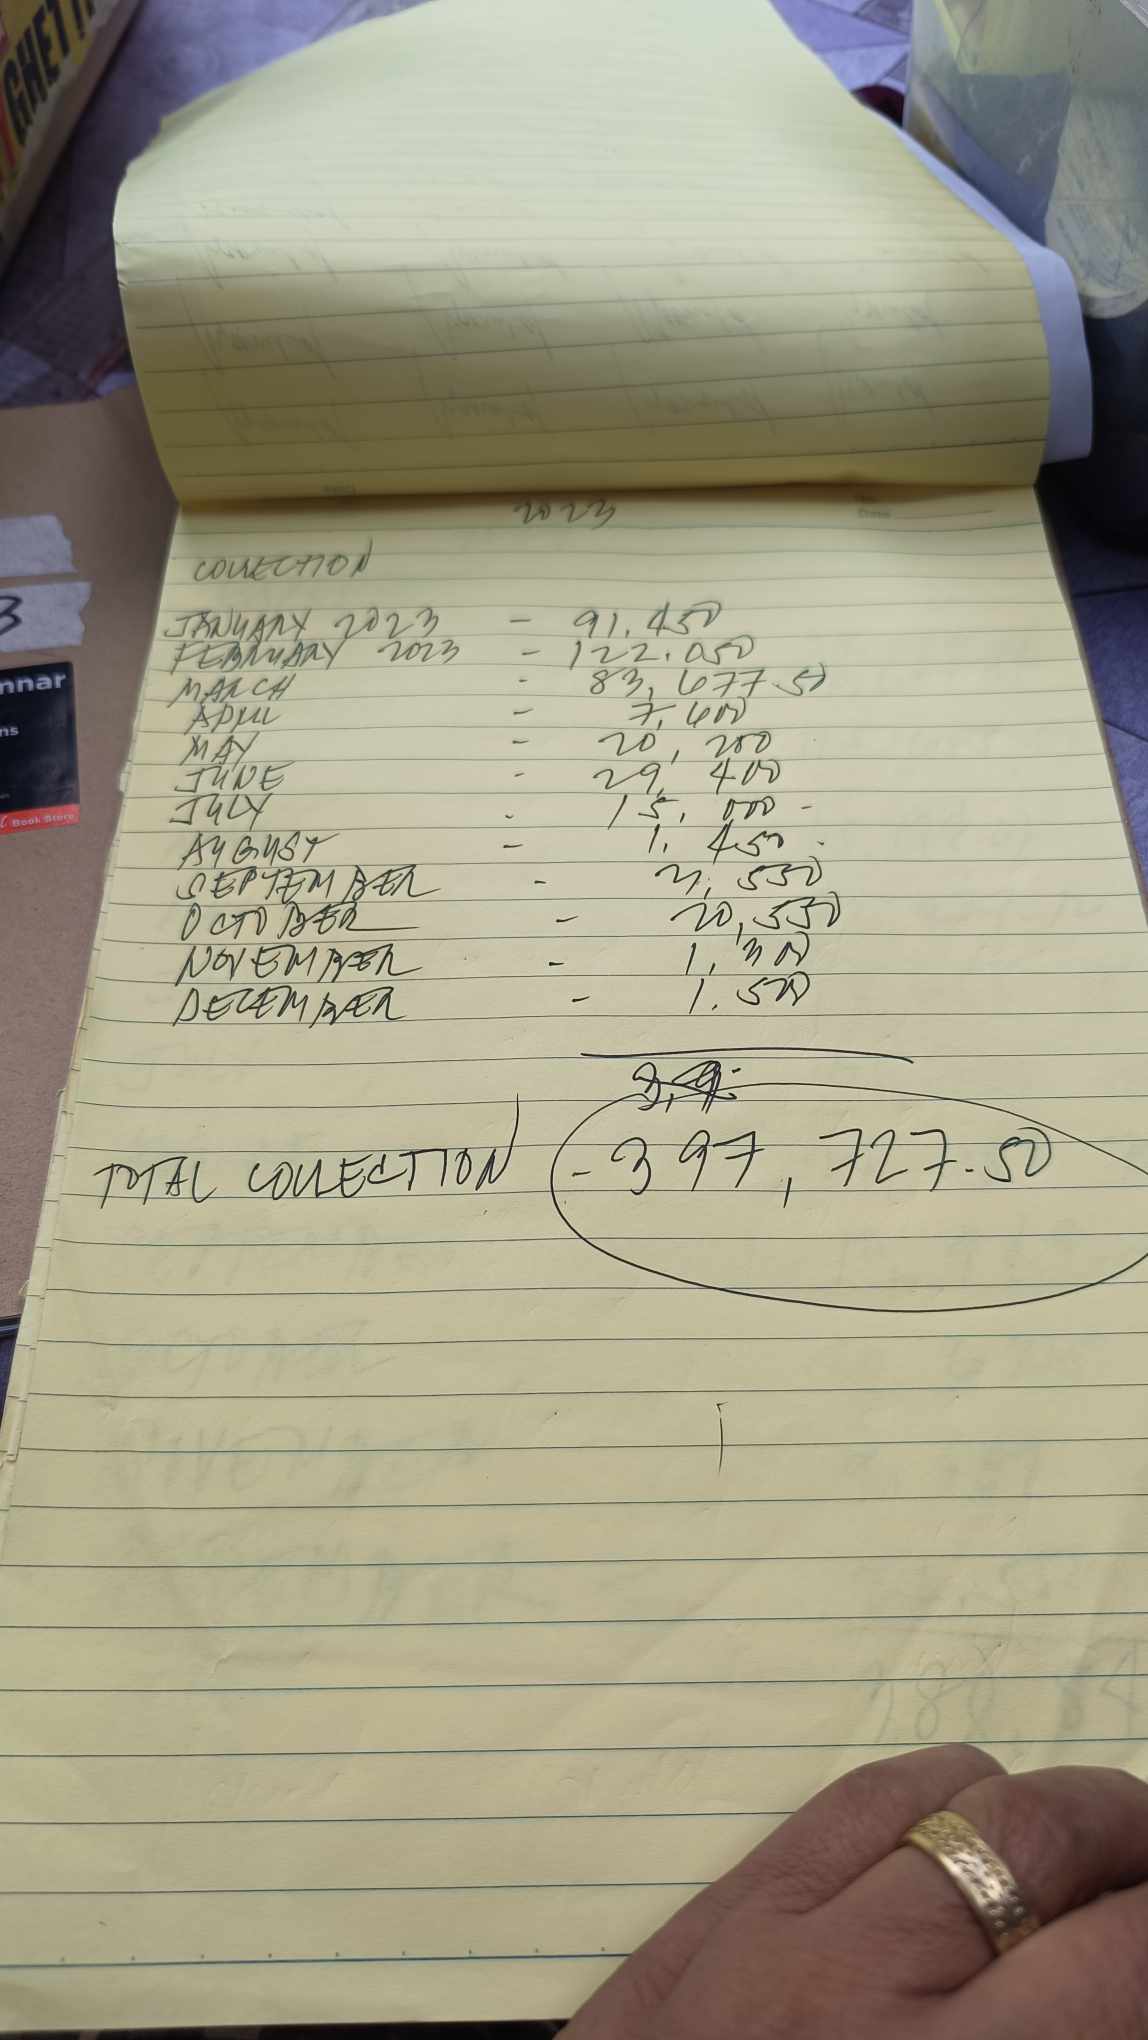 GHETTI
2023
COLLECTION
JANUARY 2023 - 91,450
FEBRUARY 2023 - 122.050
MARCH - 83,677.50
APRIL - 7,600
MAY - 20,200
JUNE - 29,400
JULY - 15,000 -
AUGUST - 1,450
SEPTEMBER - 3,550
OCTOBER - 20,550
NOVEMBER - 1,300
DECEMBER - 1.500
TOTAL COLLECTION - 397,727.50
3
nnar
ns
Book Store